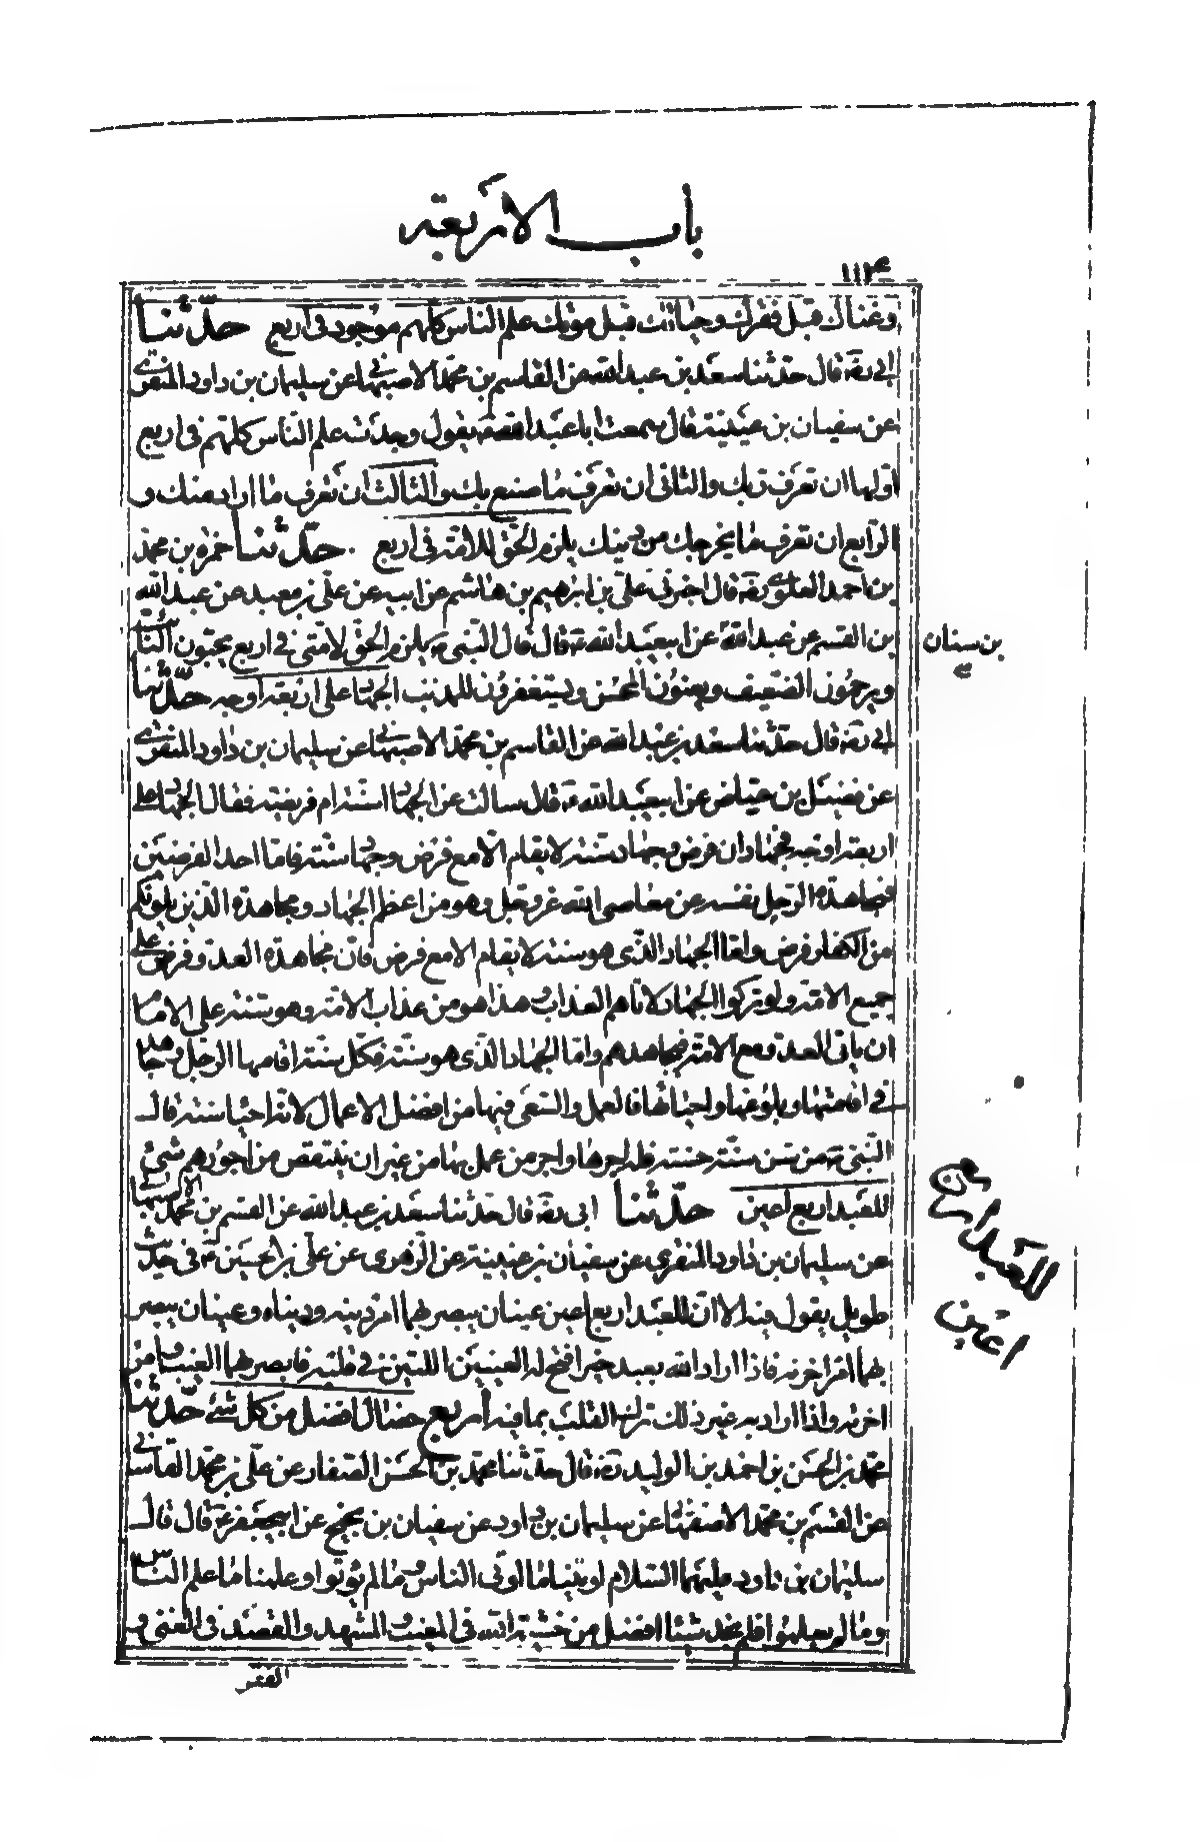 باب الاربعة
١١٤
وغناك قبل فقرك وحياتك قبل موتك علم الناس كلهم موجود في اربع حدّثنا
ابي ره قال حدّثنا سعد بن عبدالله عن القاسم بن محمّد الاصبهاني عن سليمان بن داود المنقري
عن سفيان بن عيينة قال سمعت ابا عبدالله ع يقول وجدت علم النّاس كلّهم في اربع
اوّلها ان تعرف ربك والثاني ان تعرف ما صنع بك والثالث ان تعرف ما اراد منك و
الرّابع ان تعرف ما يخرجك من دينك يلزم الحقّ للامّة في اربع حدّثنا حمزة بن محمّد
بن احمد العلوي ره قال اخبرني علىّ بن ابرهيم بن هاشم عن ابيه عن علىّ بن معبد عن عبدالله
بن القسم عن عبدالله عن ابيعبدالله ع قال قال النّبى ص يلزم الحقّ لامّتى في اربع يحبّون التّائب
بن سنان
ويرحمون الضّعيف ويعينون المحسن ويستغفرون للمذنب الجهاد على اربعة اوجه حدّثنا
ابي ره قال حدّثنا سعد بن عبدالله عن القاسم بن محمّد الاصبهاني عن سليمان بن داود المنقري
عن فضيل بن عياض عن ابيعبدالله ع قال سالت عن الجهاد اسنّة ام فريضة فقال الجهاد على
اربعة اوجه فجهادان فرض وجهاد سنّة لا يقام الّا مع فرض وجهاد سنّة فامّا احد الفرضين
فمجاهدة الرّجل نفسه عن معاصى الله عزّ وجلّ وهو من اعظم الجهاد ومجاهدة الّذين يلونكم
من الكفار فرض وامّا الجهاد الّذى هو سنّة لا يقام الا مع فرض فانّ مجاهدة العدوّ فرض على
جميع الامّة ولو تركوا الجهاد لاتاهم العذاب وهذا هو من عذاب الامّة وهو سنّة على الامام
ان ياتى العدوّ مع الامّة فيجاهدهم وامّا الجهاد الّذى هو سنّة فكلّ سنّة اقامها الرّجل وجاهد
في اقامتها وبلوغها واحيائها فالعمل والسّعى فيها من افضل الاعمال لانّه احيا سنّة قال
النّبى ص من سنّ سنّة حسنة فله اجرها واجر من عمل بها من غير ان ينتقص من اجورهم شئ
للعبد اربع اعين حدّثنا ابى ره قال حدّثنا سعد بن عبدالله عن القسم بن محمّد الاصبهاني
للعبد اربع
اعين
عن سليمان بن داود المنقري عن سفيان بن عيينة عن الزّهرى عن علىّ بن الحسين ع في حديث
طويل يقول فيه الا انّ للعبد اربع اعين عينان يبصر بهما امر دينه ودنياه وعينان يبصر
بهما امر اخرته فاذا اراد الله بعبد خيرا فتح له العينين اللّتين في قلبه فابصر بهما الغيب وامر
اخرته واذا اراد به غير ذلك ترك القلب بما فيه اربع خصال افضل من كل شئ حدّثنا
محمّد بن الحسن بن احمد بن الوليد ره قال حدّثنا محمّد بن الحسن الصّفار عن علىّ بن محمّد القاساني
عن القسم بن محمّد الاصفهاني عن سليمان بن داود عن سفيان بن نجيح عن ابيجعفر ع قال قال
سليمان بن داود عليهما السّلام اوتينا ما اوتى الناس وما لم يؤتوا وعلمنا ما علم النّاس
وما لم يعلموا فلم نجد شيئا افضل من خشية الله في المغيب والمشهد والقصد في الغنى و
الفقر